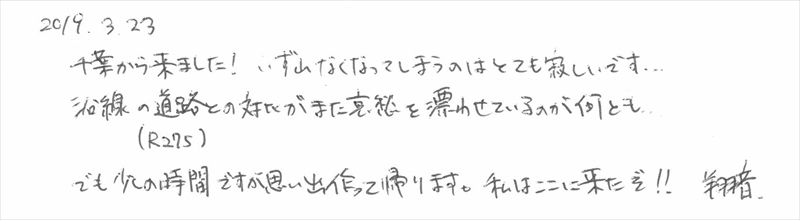 2019.3.23
千葉から来ました！いずれなくなってしまうのはとても寂しいです…
沿線の道路との対比がまた哀愁を漂わせているのが何とも…
(R275)
でも少しの時間ですが思い出作って帰ります。私はここに来たぞ!!